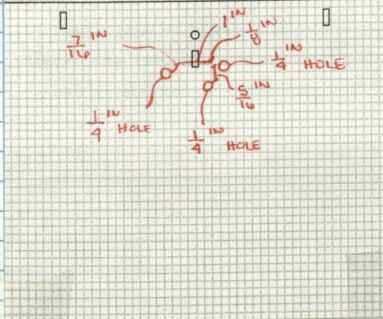 1 IN
1/8
7/16 IN
1/4 IN HOLE
5/16 IN
1/4 IN HOLE
1/4 IN HOLE